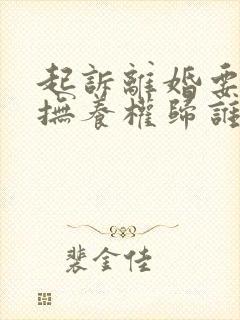 起訴離婚要
撫養權歸誰
裴金佳